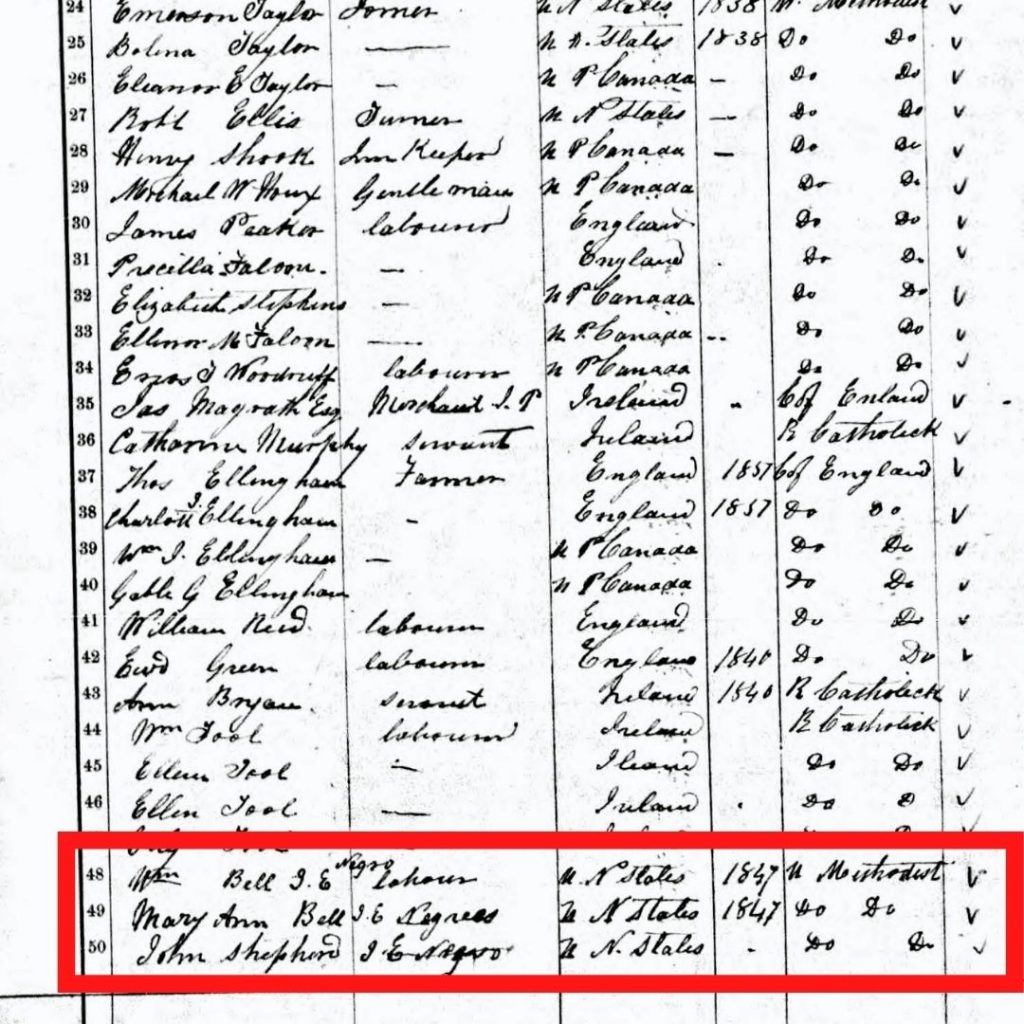 24 Emerson Taylor Farmer U N States 1838 W. Methodist
25 Bolena Taylor — U N. States 1838 Do Do
26 Eleanor E Taylor — U P Canada — Do Do
27 Robt Ellis Turner U N States — Do Do
28 Henry Shook Inn Keeper U P Canada — Do Do
29 Michael W Gentleman U P Canada Do Do
30 James Peaker labourer England Do Do
31 Precilla Faloon. — England Do Do
32 Elizabeth Stephens — U P Canada Do Do
33 Ellenor M Faloon — U P. Canada Do Do
34 J Woodruff labourer U P Canada Do Do
35 Jas Magrath Esq Merchant J. P Ireland C of Enland
36 Catharine Murphy servant Ireland R Catholick
37 Thos Ellingham Farmer England 1837 C of England
38 Charlott J Ellingham — England 1837 Do Do
39 Wm J. Ellingham — U P Canada Do Do
40 G Ellingham U P Canada Do Do
41 William labourer England Do Do
42 Ewd Green labourer England 1840 Do Do
43 Ann Bryan servant Ireland 1840 R Catholick
44 Wm Tool labourer Ireland R Catholick
45 Ellen Tool — Ireland Do Do
46 Ellen Tool — Ireland Do D
48 Wm Bell J. E Negro labour U. N States 1847 U Methodist
49 Mary Ann Bell J. E Negress U N States 1847 Do Do
50 John Shepherd J. E Negro U N. States Do Do